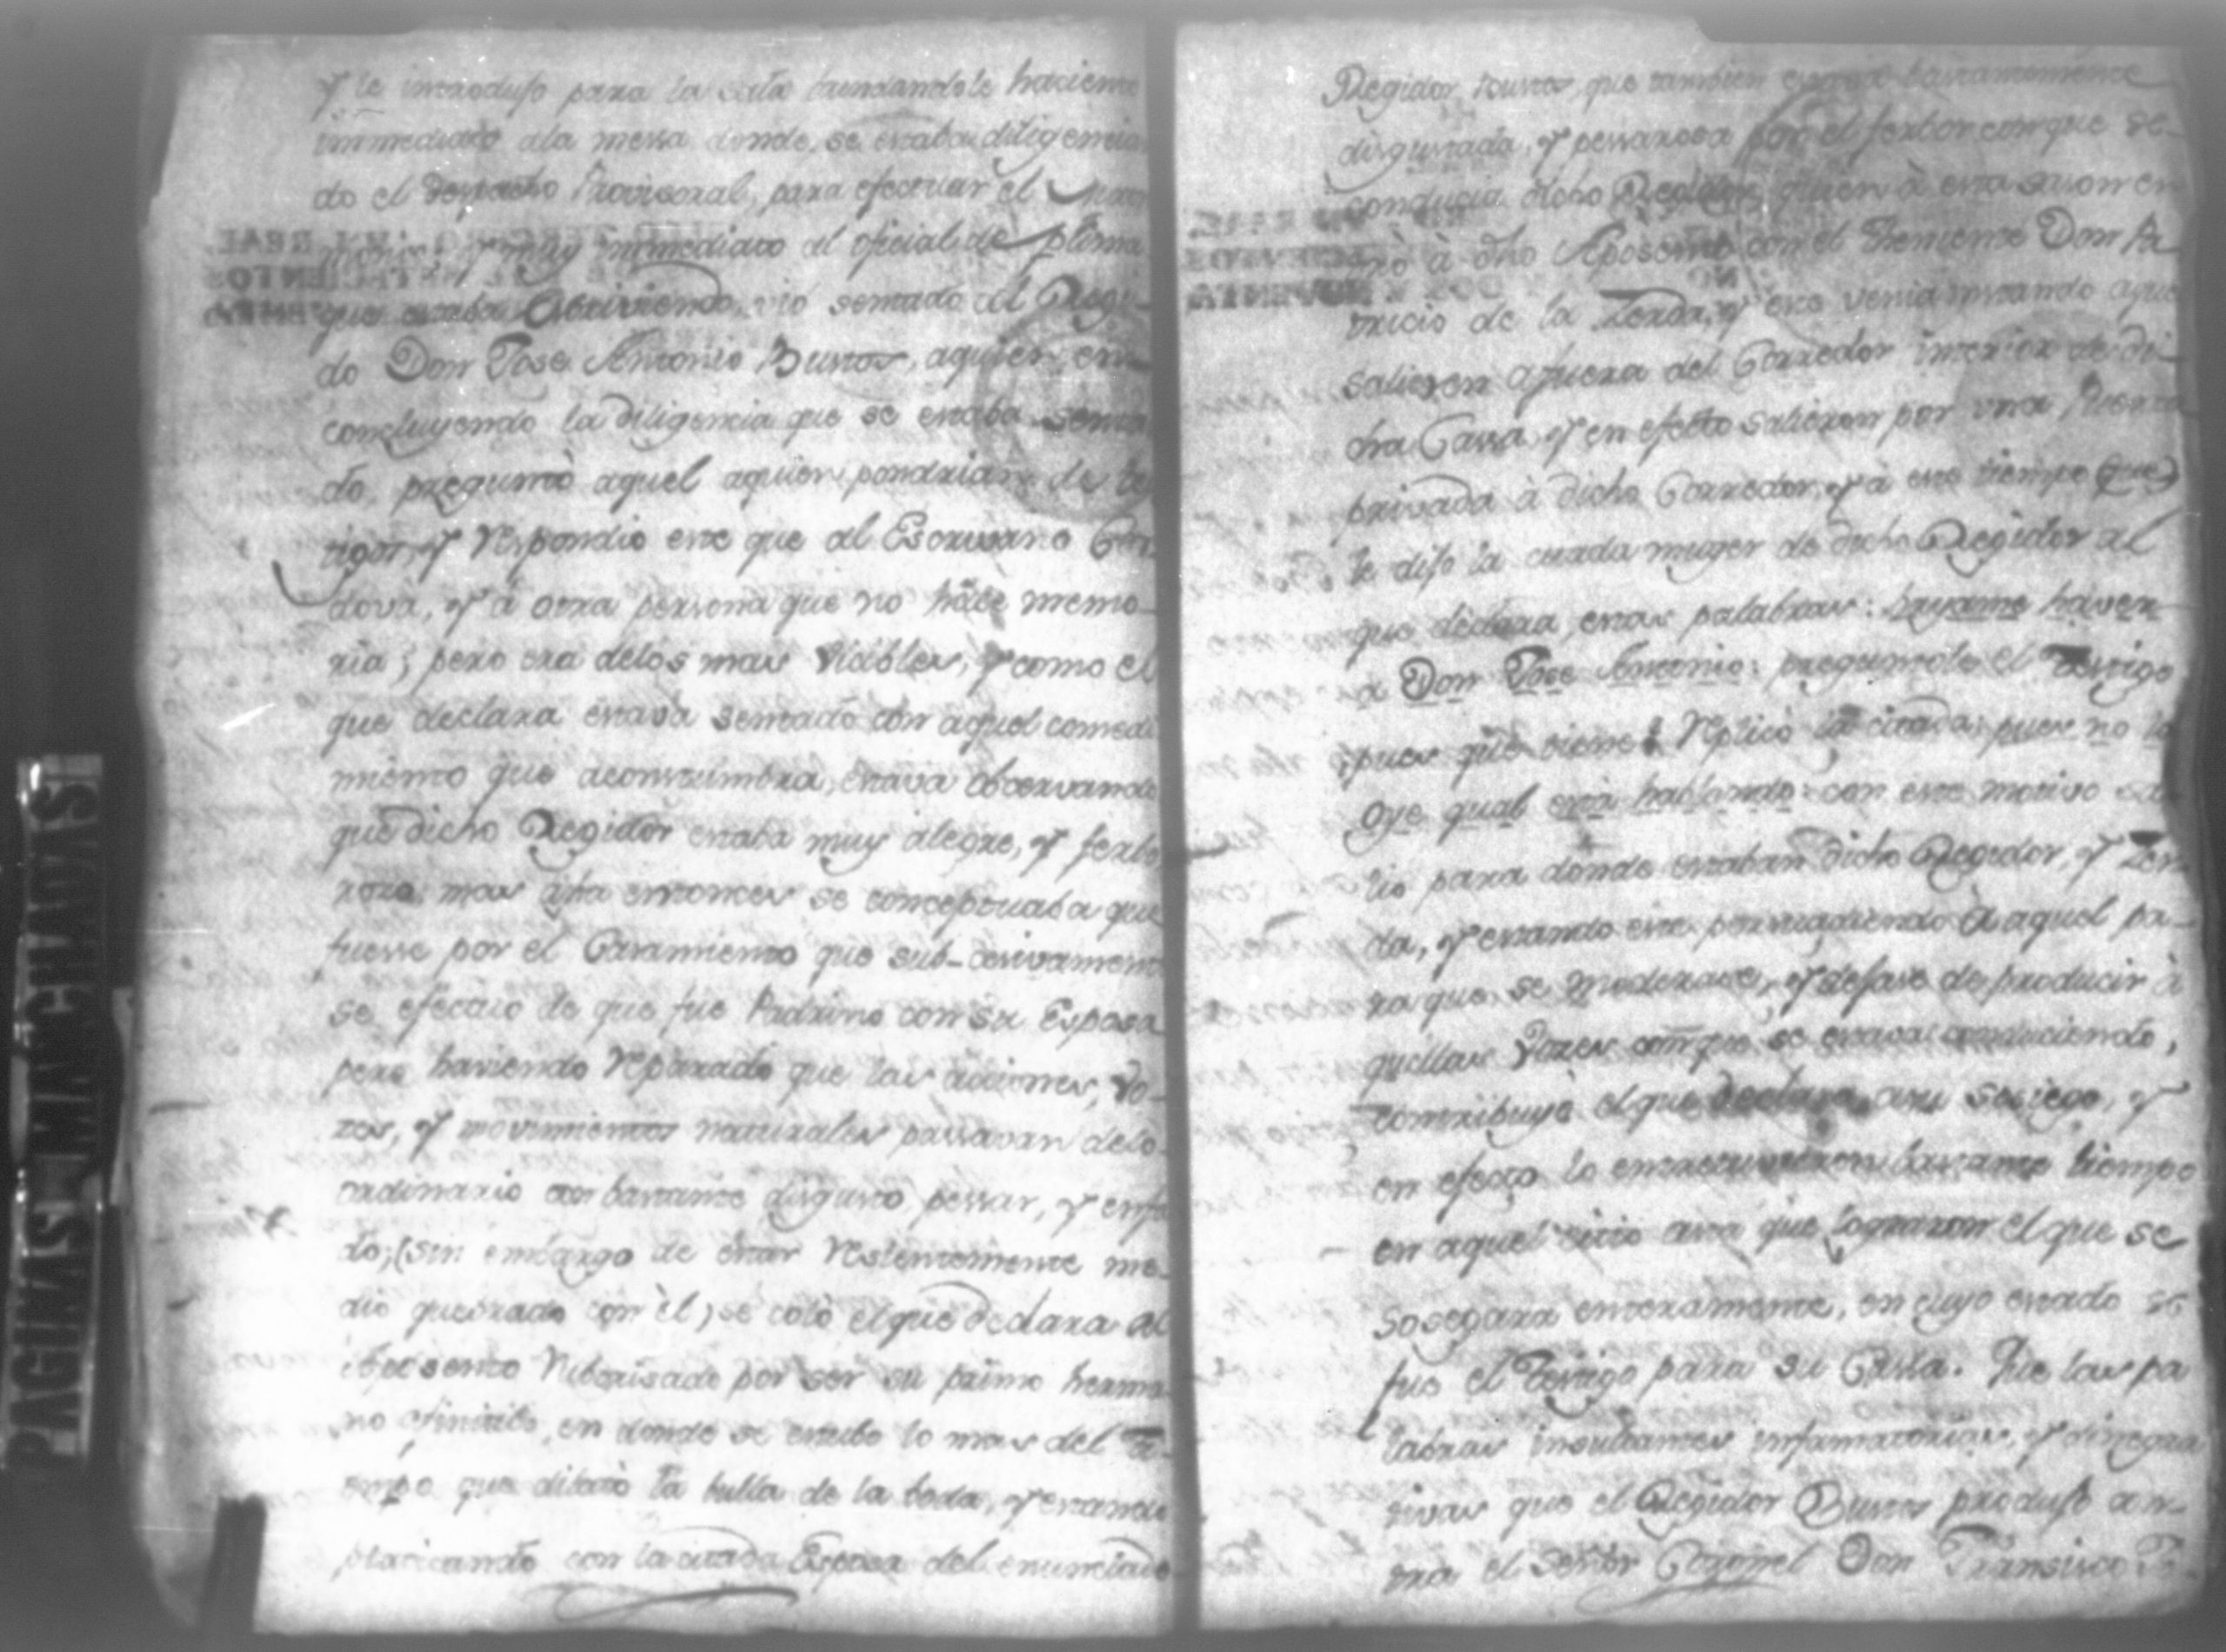 y le introdujo para la sala brindandole haciento
immediato ala messa donde se estaba diligencian
do el despacho Provisoral, para efectuar el
y muy immediato al oficial de pluma
que estaba escriviendo, vió sentado al Regi-
do Don Jose Antonio Bustos, aquien en
concluyendo la diligencia que se estaba senta
do, preguntò aquel aquien pondrian de tes
tigos, y respondio este que al Escrivano Cor
dova, y à otra persona que no hâce memo-
ria; pero era delos mas visibles, y como el
que declara estava sentado con aquel comedi
miento que acostumbra, estava observando
que dicho Regidor estaba muy alegre, y ferbo
rozo mas âsta entonces se conseptuaba que
fuesse por el Casamiento que sub-cesivamente
se efectuo de que fue Padrino con su Esposa
pero haviendo reparado que las acciones, vo-
zes, y movimientos naturales passavan delo
ordinario con bastante disgusto, pessar, y enfa
do; (sin embargo de estar resientemente me-
dio quebrado con èl) se colò el que declara al
Aposento por ser su primo herma
no , en donde se estubo lo mas del Ti-
empo que dilatò la bulla de la boda, y estando
platicando con la citada Esposa del enunciado
Regidor Bustos, que tambien estava bastantemente
disgustada, y pessarosa por el ferbor con que se
conducia dicho Regidor, quien à esta sason en
trò à dho Aposento con el Theniente Don Pa
tricio de la Zerda, y este venia instando aque
saliesen afuera del Corredor interior de di-
cha Cassa, y en efecto salieron por una Puerta
privada à dicho Corredor, y à este tiempo que
le dijo la citada muger de dicho Regidor al
que declara, estas palabras: hayame haver
a Don Jose Antonio: preguntole el Testigo
pues què tiene? Replicò la citada; pues no lo
oye qual està hablando: con este motivo sa
lio para donde estaban dicho Regidor, y Zer-
da, y estando este persuadiendo à aquel pa-
ra que se moderase, y dejase de producir à
quellas vozes con que se estava conduciendo,
contribuyò el que declara, a su sosiego, y
en efecto lo bastante tiempo
en aquel sitio asta que lograron el que se
sosegara enteramente, en cuyo estado se
fue el Testigo para su Cassa. Que las pa
labras insultantes infamatorias, y dinegra
tivas que el Regidor Bustos produjo con-
tra el Señor Coronel Don Fransisco
PAGINAS MANCHADAS